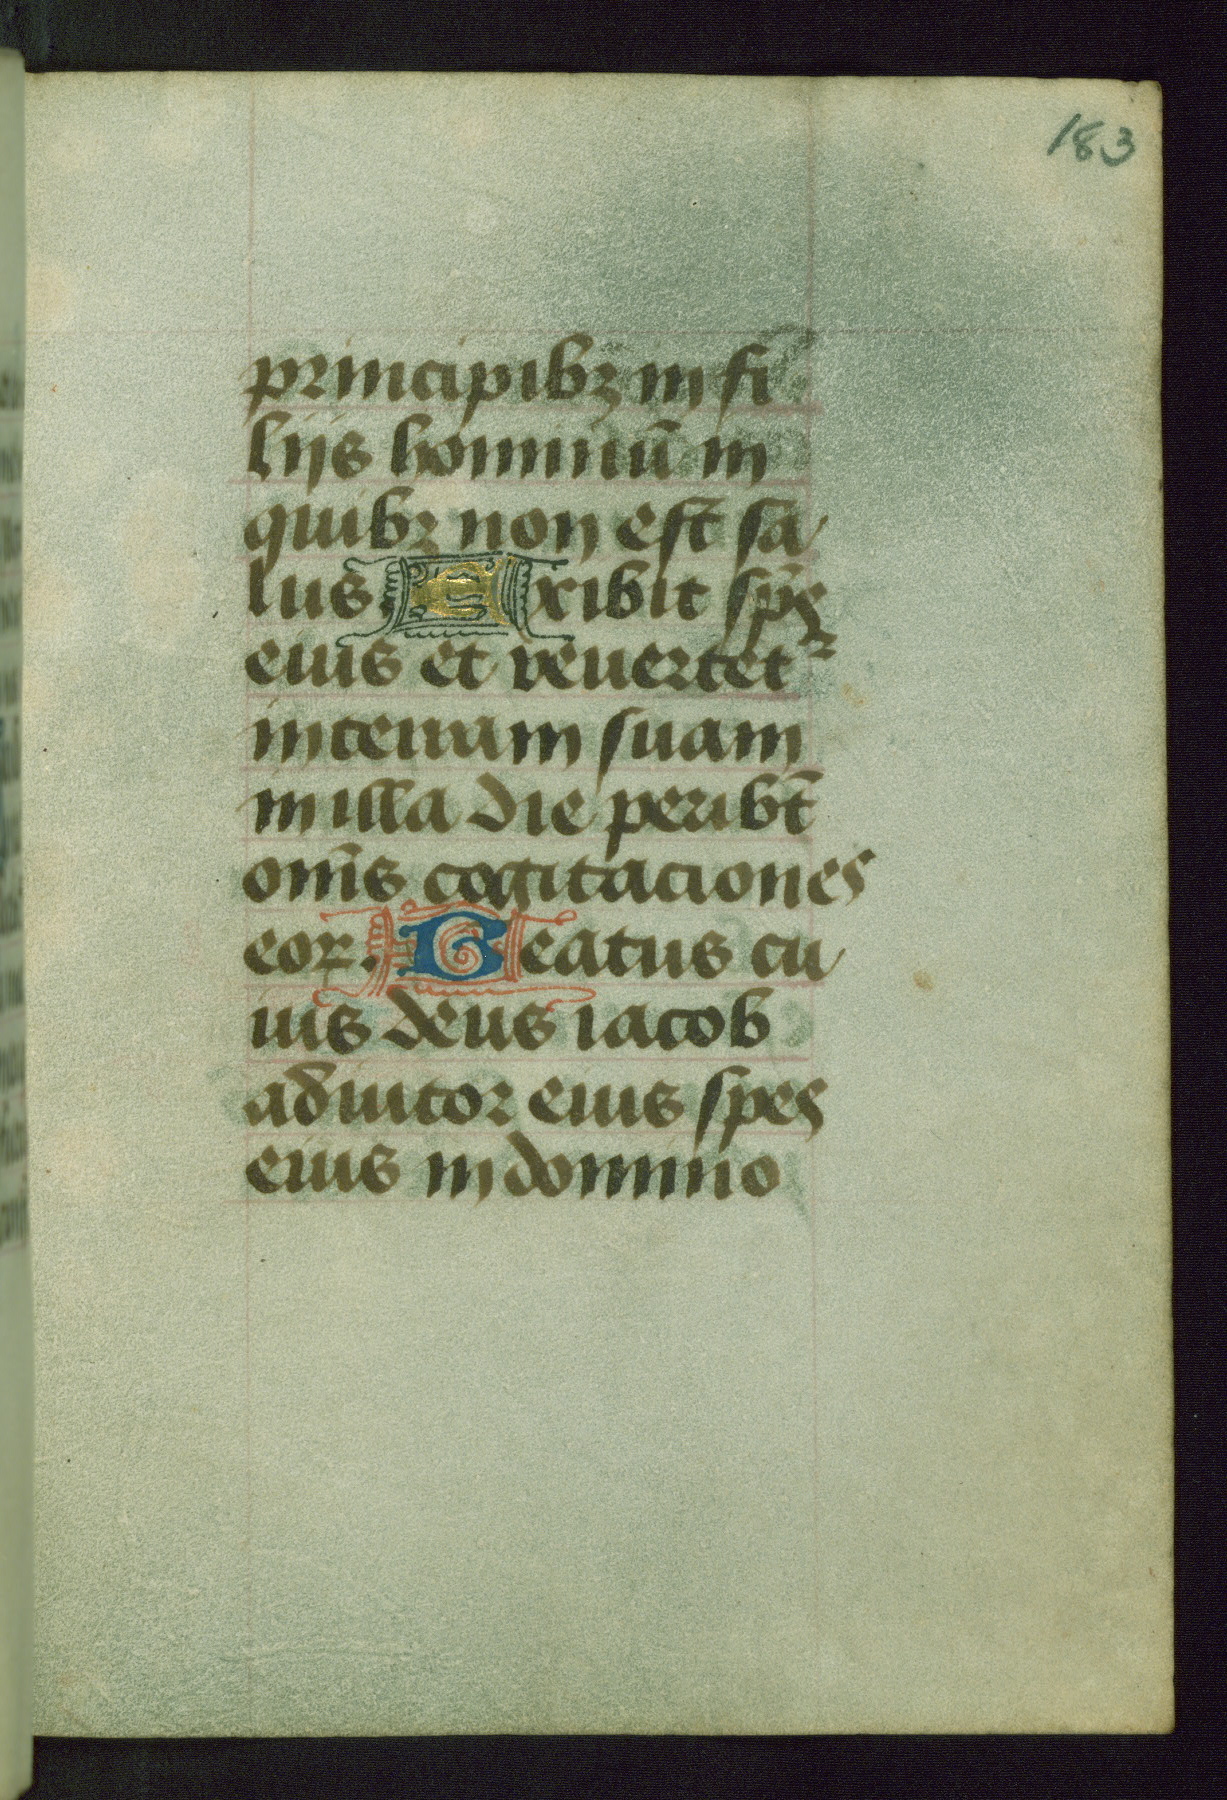 183
principibꝫ in fi
liis hominū in
quibꝫ non est sa
lus Exibit sp̄s
eius et reuertet᷑
in terram suam
in illa die peribt̄
om̄s cogitaciones
eoꝝ. Beatus cu
ius deus iacob
adiutor eius spes
eius in domino